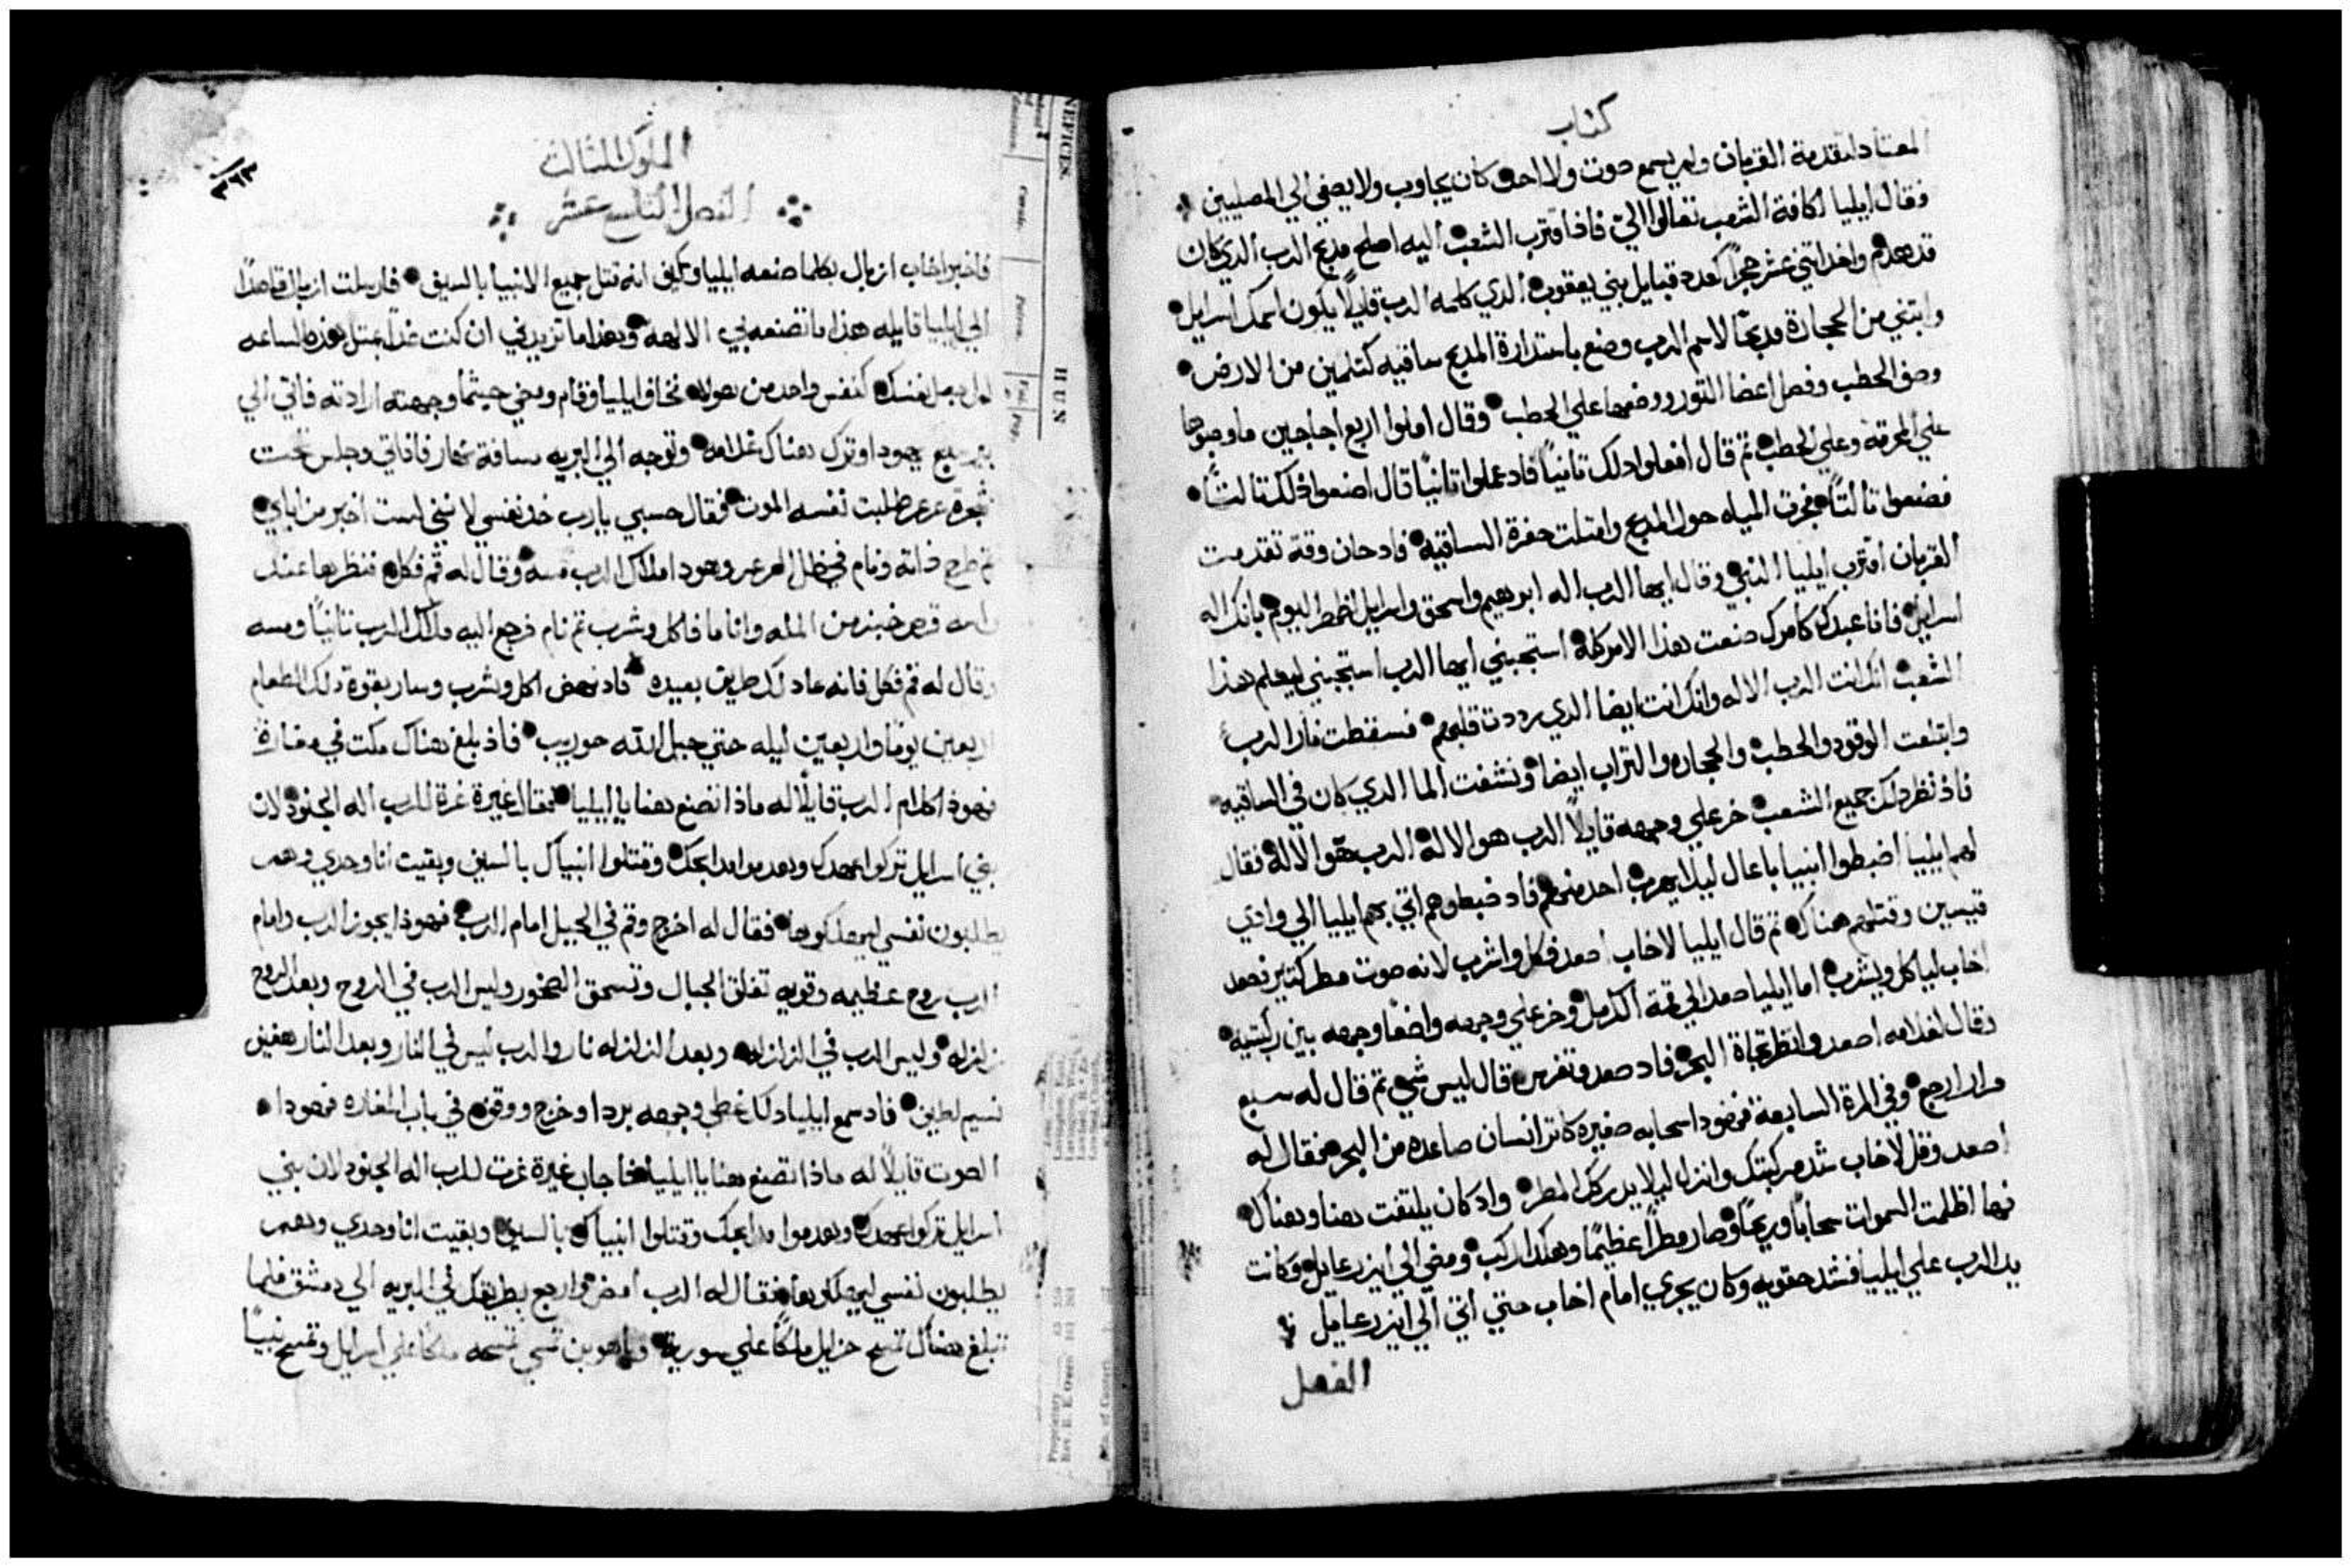 كتاب
المعتاد لتقدمة القربان ولم يسمع صوت ولا احد كان يجاوب ولا يصغي الي المصليين
فقال ايليا لكافة الشعب تعالوا اليّ فاذ اقترب الشعب اليه اصلح مذبح الرب الذي كان
قد هدم واخذ اثني عشر حجراً كعدد قبايل بني يعقوب الذي كلمه الرب قايلاً يكون اسمك اسراييل
وابتني من الحجارة مدبحًا لاسم الرب وصنع باستدارة المدبح ساقيه كتلمين من الارض
وصف الحطب وفصل اعضا التور ووضعها علي الحطب وقال املوا اربع اجاجين ما وصبوها
علي المحرقة وعلي الحطب تم قال افعلوا دلك تانياً فاد عملوا تانياً قال اصنعوا ذلك تالتاً
فصنعوا تالتاً فجرت المياه حول المدبح وامتلت حفرة الساقيه فاد حان وقت تقدمت
القربان اقترب ايليا النبي وقال ايها الرب اله ابرهيم واسحق واسرايل اظهر اليوم بانك اله
اسراييل فانا عبدك وكامرك صنعت هذا الامر كله استجبني ايها الرب استجبني ليعلم هذا
الشعب انك انت الرب الاله وانك انت ايضا الدي رددت قلبهم فسقطت نار الرب
وابتلعت الوقود والحطب والحجاره والتراب ايضا ونشفت الما الدي كان في الساقيه
فاذ نظر دلك جميع الشعب خر علي وجهه قايلاً الرب هو الاله الرب هو الاله فقال
لهم ايليا اضبطوا انبيا باعال ليلا يهرب احد منهم فاد ضبطوهم اتي بهم ايليا الي وادي
قيسين وقتلهم هناك تم قال ايليا لاخاب اصعد فكل واشرب لانه صوت مطر كتير فصعد
اخاب لياكل ويشرب اما ايليا صعد الي قمة الكرمل وخر علي وجهه واضعًا وجهه بين ركبتيه
وقال لغلامه اصعد وانظر تجاة البحر فاد صعد وتفرس قال ليس شي تم قال له سبع
مرار ارجع وفي المرة السابعة فهودا سحابه صغيره كاتر انسان صاعده من البحر فقال له
اصعد وقل لاخاب شد مركبتك وانزل ليلا يدركك المطر واد كان يلتفت هنا وهناك
فها اظلمت السموات سحاباً وريحًا وصار مطراً عظيمًا وهكدا ركب ومضي الي ايزرعايل وكانت
يد الرب علي ايليا فشد حقويه وكان يجري امام اخاب حتي اتي الي ايزرعايل
الفصل
الملوك الثالث
٣٦٣
الفصل التاسع عشر
فاخبر اخاب ازبال بكلما صنعه ايليا وكيف انه قتل جميع الانبيا بالسيف فارسلت ازبال قاصداً
الي ايليا قايله هذا ما تصنعه بي الالهه وهذا ما تزيدني ان كنت غداً بمتل هذه الساعه
نفسك كنفس واحد من هولاء فخاف ايليا وقام ومضي حيثما وجهته ارادته فاتي الي
بير سبع يهودا وترك هناك غلامه وتوجه الي البريه مسافة نهار فاتي وجلس تحت
شجرة عرعر وطلبت نفسه الموت فقال حسبي يا رب خد نفسي لانني لست اخير من اباي
تم طرح داته ونام في ظل العرعر وهودا ملاك الرب مسه وقال له قم فكل فنظر ها عند
راسه قرص خبز من المله وانا ما فاكل وشرب تم نام فرجع اليه ملاك الرب تانياً ومسه
وقال له قم فكل فانه عاد لك طريق بعيده فاد نهض اكل وشرب وسار بقوة دلك الطعام
اربعين يوماً واربعين ليله حتي جبل الله حوريب فاذ بلغ هناك مكت في مغارة
فهوذا كلام الرب قايلًا له ماذا تصنع هنا يا ايليا فقال غيرة غرة للرب اله الجنود لان
بني اسرايل تركوا عهدك وهدموا مدابحك وقتلوا انبياك بالسيف وبقيت انا وحدي وهم
يطلبون نفسي لياخدوها فقال له اخرج وقم في الجبل امام الرب فهوذا يجوز الرب وامام
الرب روح عظيمه وقويه تفلق الجبال وتسحق الصخور وليس الرب في الروح وبعد الروح
زلزله وليس الرب في الزلزله وبعد الزلزله نار والرب ليس في النار وبعد النار هفيف
نسيم لطيف فاد سمع ايليا دلك غطي وجهه بردا وخرج ووقف في باب المغاره فهودا
الصوت قايلًا له ماذا تصنع هنا يا ايليا فاجاب غيرة غرت للرب اله الجنود لان بني
اسرايل تركوا عهدك وهدموا مدابحك وقتلوا انبياك بالسيف وبقيت انا وحدي وهم
يطلبون نفسي فقال له الرب امض وارجع بطريقك في البريه الي دمشق فلما
تبلغ هناك تمسح حزايل ملكًا علي سورية وياهو بن نمسي تمسحه ملكًا علي اسرايل وتمسح نبياً